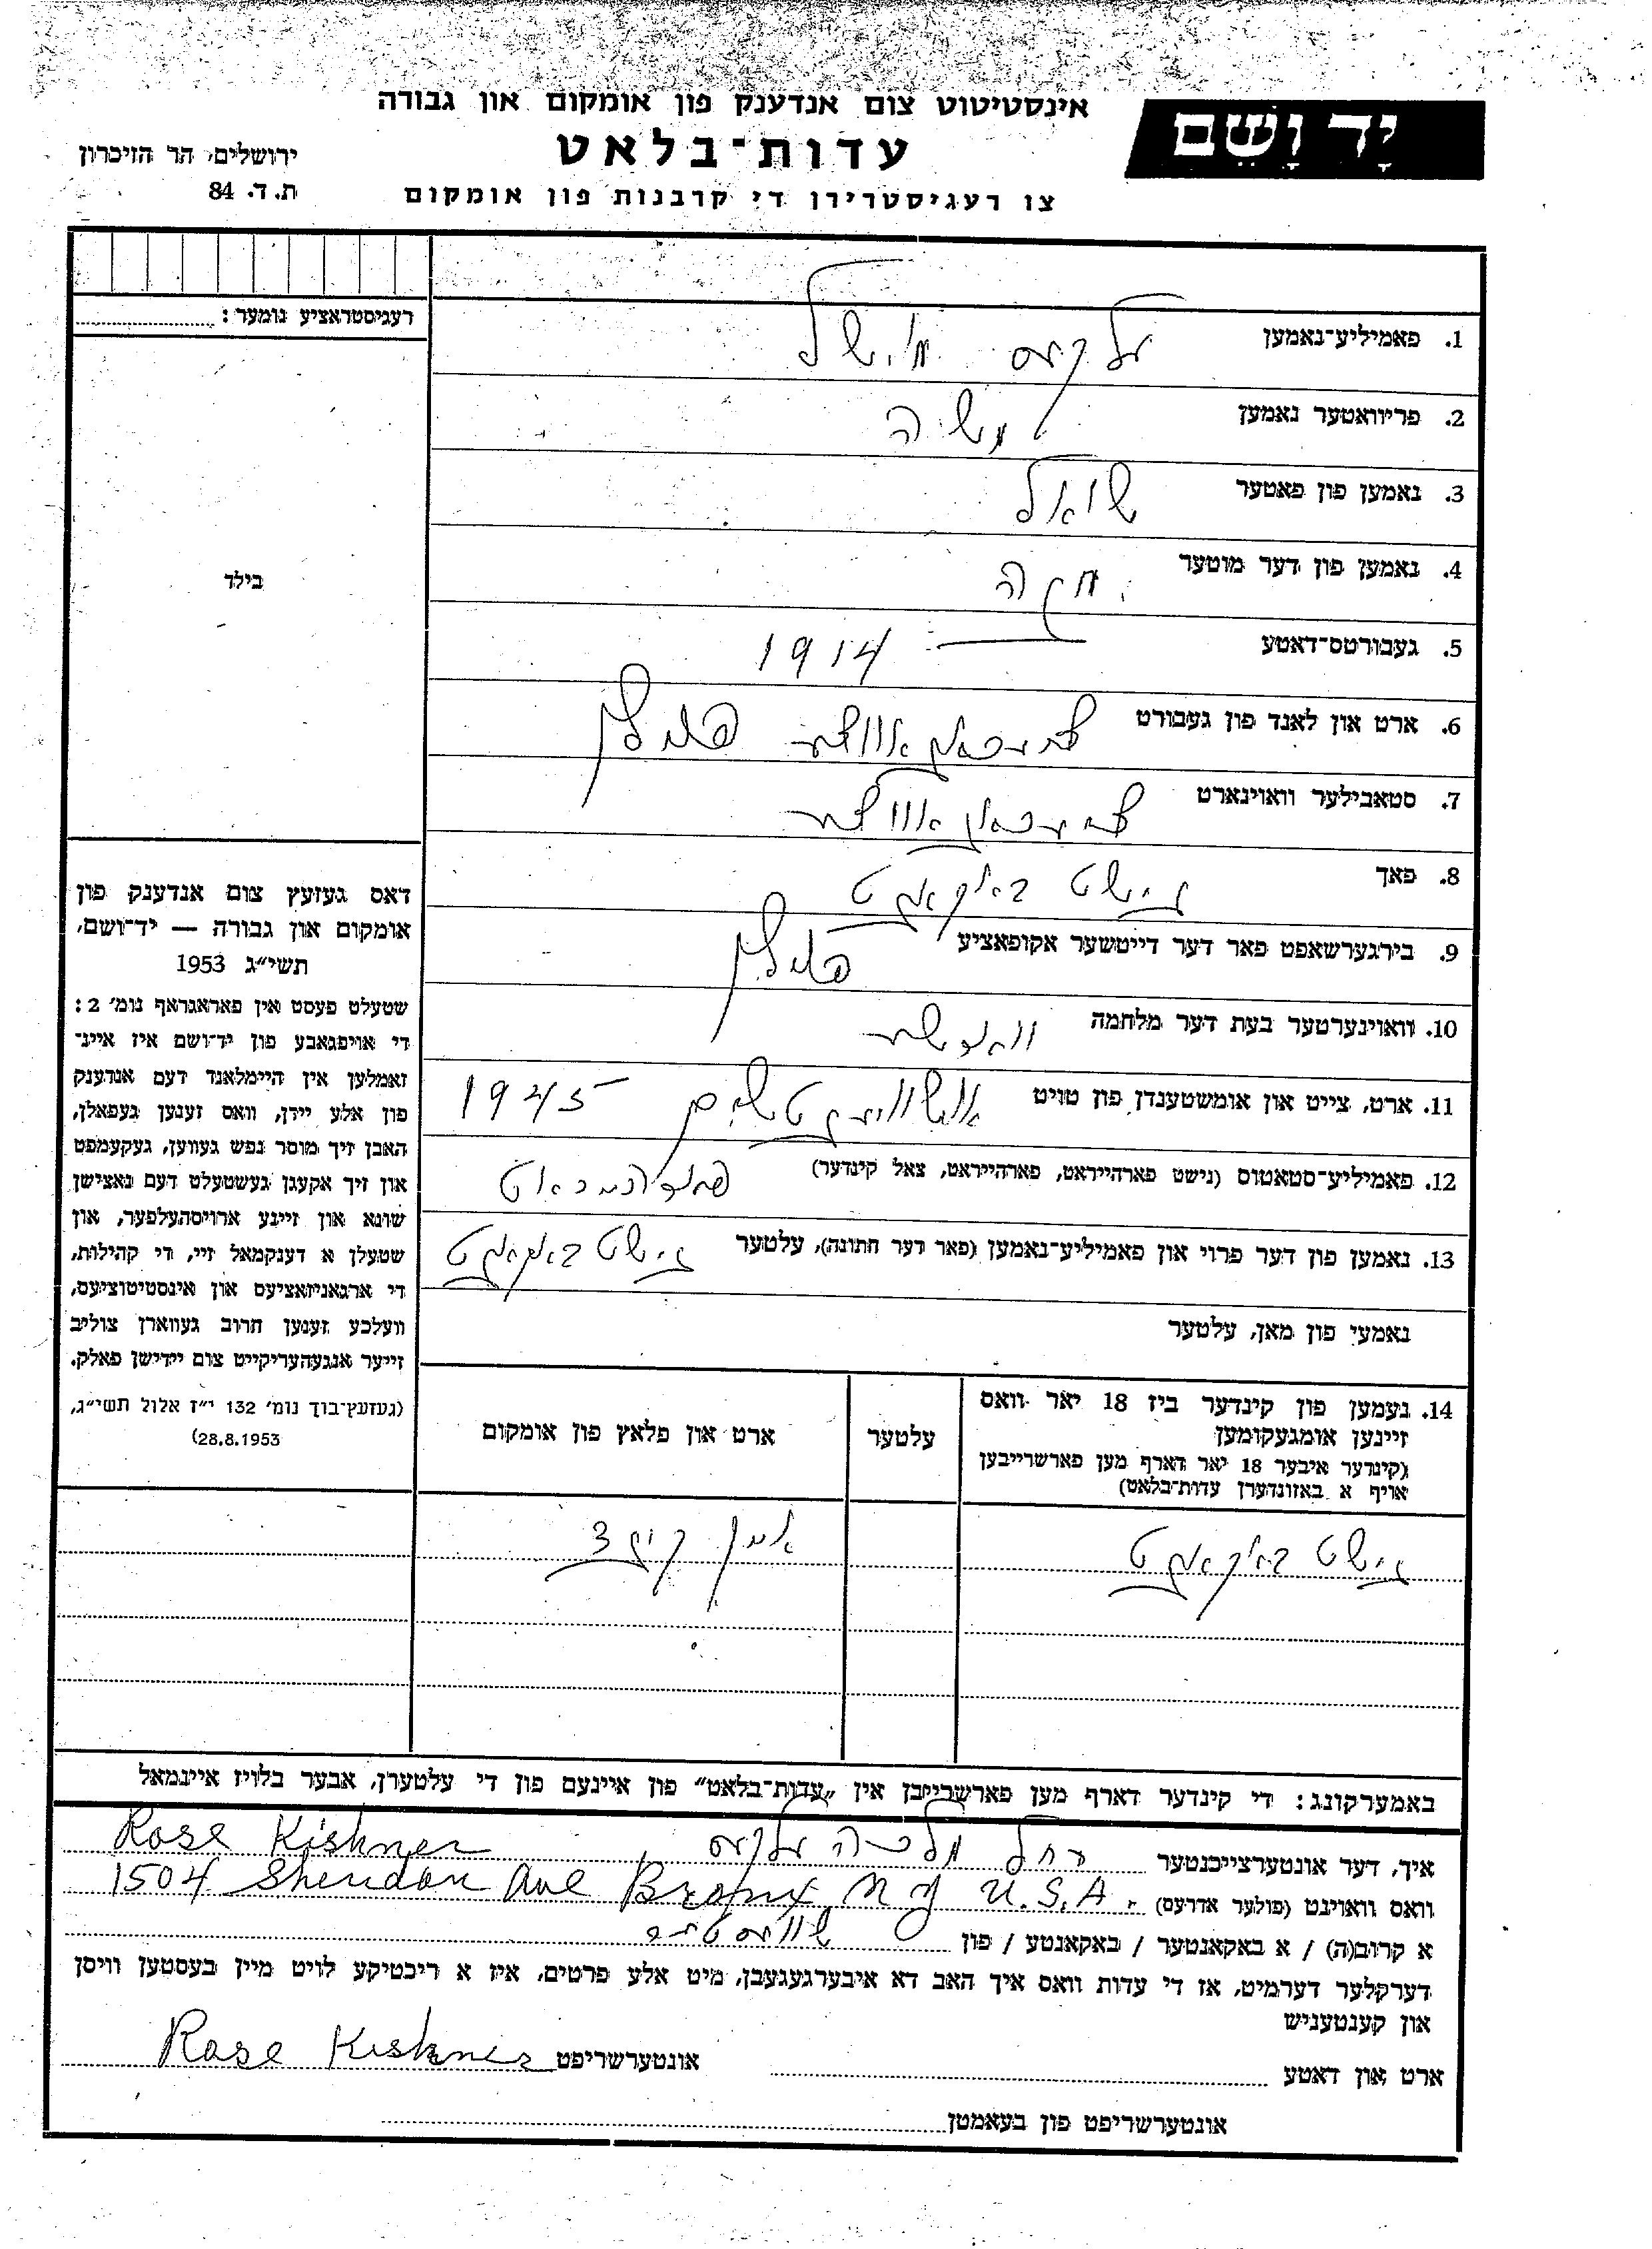 אינסטיטוט צום אנדענק פון אומקום און גבורה
יָד וָשֵׁם
עדות־בלאט
ירושלים, הר הזיכרון
ת. ד. 84
צו רעגיסטרירן די קרבנות פון אומקום
רעגיסטראציע נומער:
בילד
1. פאמיליע־נאמען
2. פריוואטער נאמען משה
3. נאמען פון פאטער שואל
4. נאמען פון דער מוטער
5. געבורטס־דאטע 1914
6. ארט און לאנד פון געבורט פוילן
7. סטאבילער וואוינארט
8. פאך נישט באקאנט
9. בירגערשאפט פאר דער דייטשער אקופאציע פוילן
10. וואוינערטער בעת דער מלחמה
11. ארט, צייט און אומשטענדן פון טויט 1945
12. פאמיליע־סטאטוס (נישט פארהייראט, פארהייראט, צאל קינדער)
13. נאמען פון דער פרוי און פאמיליע־נאמען (פאר דער חתונה), עלטער נישט באקאנט
נאמעי פון מאן, עלטער
14. נעמען פון קינדער ביז 18 יאר וואס
זיינען אומגעקומען
(קינדער איבער 18 יאר דארף מען פארשרייבן
אויף א באזונדערן עדות־בלאט)
עלטער
ארט און פלאץ פון אומקום
נישט באקאנט
דאס געזעץ צום אנדענק פון
אומקום און גבורה — יד־ושם,
תשי״ג 1953
שטעלט פעסט אין פאראגראף נומ׳ 2:
די אויפגאבע פון יד־ושם איז איינ־
זאמלען אין היימלאנד דעם אנדענק
פון אלע יידן, וואס זענען געפאלן,
האבן זיך מוסר נפש געווען, געקעמפט
און זיך אקעגן געשטעלט דעם נאצישן
שונא און זיינע ארויסהעלפער, און
שטעלן א דענקמאל זיי, די קהילות,
די ארגאניזאציעס און אינסטיטוציעס,
וועלכע זענען חרוב געווארן צוליב
זייער אנגעהעריקייט צום יידישן פאלק.
(געזעץ־בוך נומ׳ 132 י״ז אלול תשי״ג,
28.8.1953)
באמערקונג: די קינדער דארף מען פארשרייבן אין „עדות־בלאט" פון איינעם פון די עלטערן, אבער בלויז איינמאל
איך, דער אונטערצייכנטער רחל מלכה Rose Kishner
וואס וואוינט (פולער אדרעס) 1504 Sheridan Ave Bronx N Y U.S.A.
א קרוב(ה) / א באקאנטער / באקאנטע / פון שוועסטער
דערקלער דערמיט, אז די עדות וואס איך האב דא איבערגעגעבן, מיט אלע פרטים, איז א ריכטיקע לויט מיין בעסטען וויסן
און קענטעניש
ארט און דאטע אונטערשריפט Rose Kishner
אונטערשריפט פון בעאמטן